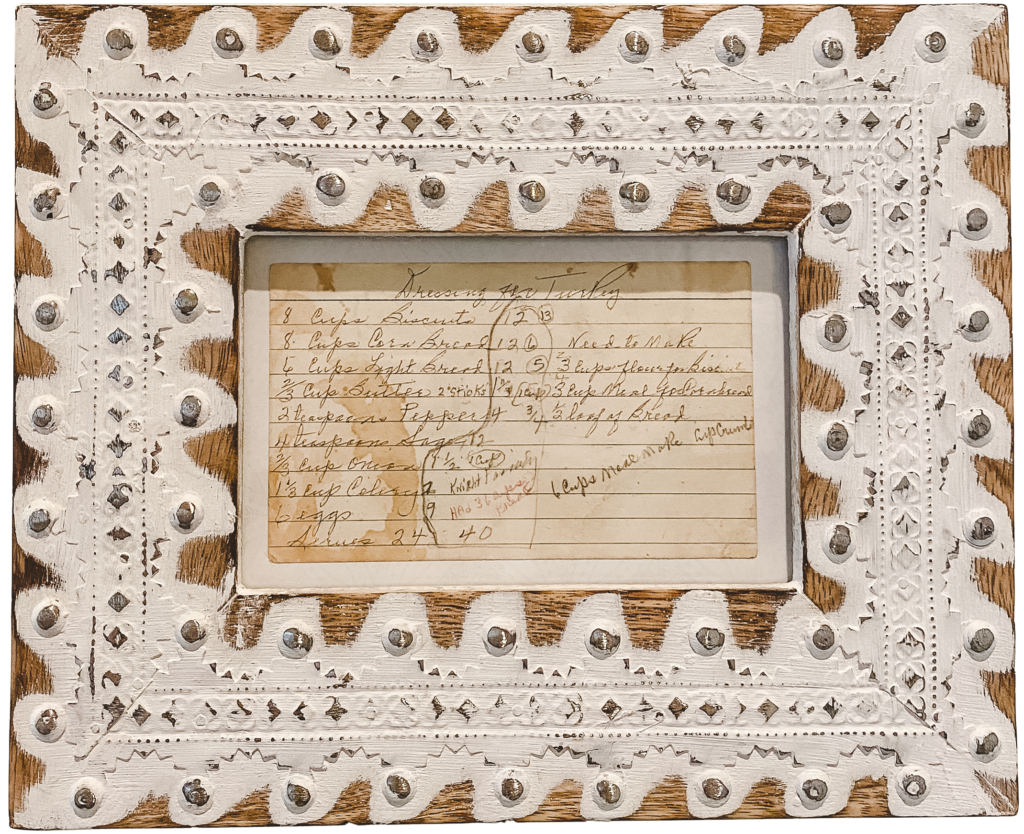 Dressing for Turkey
8 Cups Biscuits 12 13
8 Cups Corn Bread 12 6 Need to Make
6 Cups Light Bread 12 5 2/3 Cups flour for Biscuit
2/3 Cup Butter 2 sticks 3 Cup Meal for Cornbread
2 teaspoon Pepper 4 3/4 2/3 loaf of Bread
4 teaspoons Sage 12
2/3 Cup Onion 1 1/2 Cup 6 Cups Meal Make Cup Crumbs
1 1/3 Cup Celery 2
6 eggs 9 Had 36
Serves 24 40